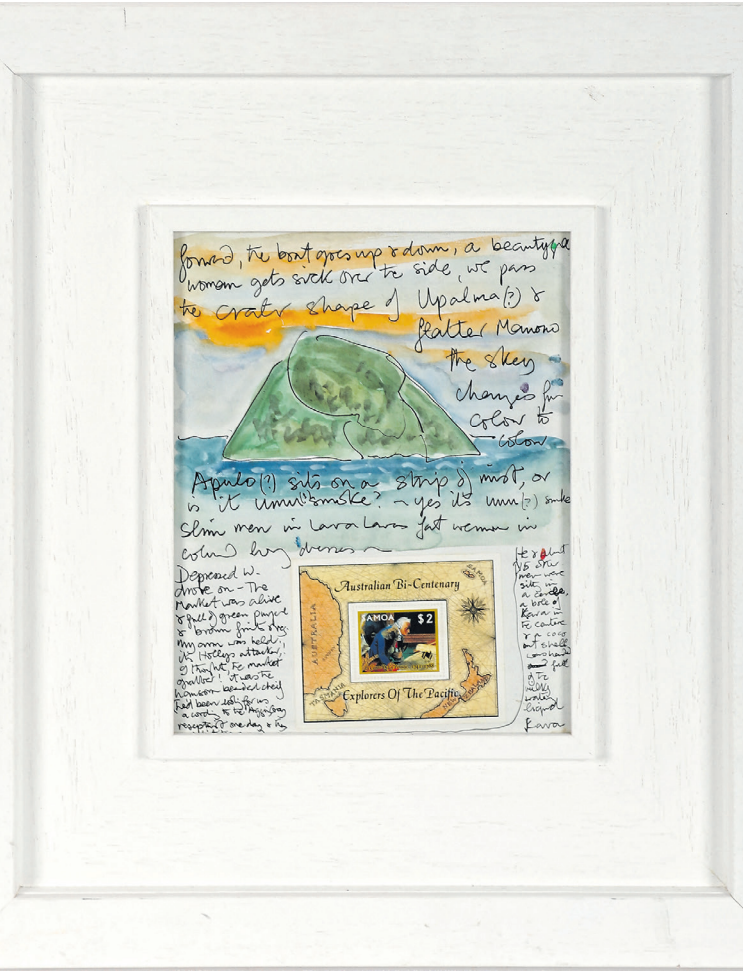 forward, the boat goes up & down, a beautyful
woman gets sick over the side, we pass
the crater shape of Upalma(?) &
flatter Manono
the skey
changes fm
color to
colour
Apulo(?) sits on a strip of mist, or
is it umu(?) smoke? — yes its umu(?) smoke
Slim men in Lava Lavas fat women in
colord long dresses
Depressed w.
drove on - The
Market was alive
& full of green purple
& brown fruit & veg.
my arm was held,
Holleys attacker,
I thought, the market
it was the
hansom bearded chief
had been looking for us
acording to the
reception & one day & he
Australian Bi-Centenary
SAMOA
AUSTRALIA
SAMOA
$2
TASMANIA
NEW ZEALAND
Explorers Of The Pacific
He & about
15 other
men were
sitting in
a circle,
a bole of
Kava in
the centre
& a coco
nut shell
was handed
full
of the
milky
watery
liquid
Kava